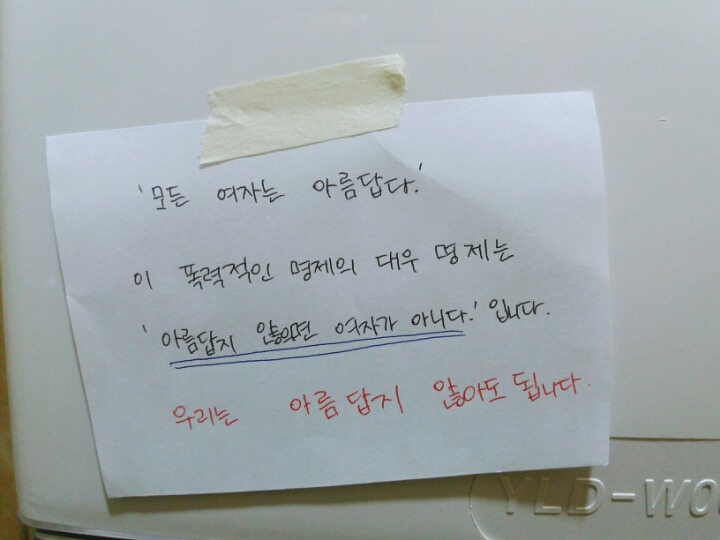 '모든 여자는 아름답다.'
이 폭력적인 명제의 대우 명제는
'아름답지 않으면 여자가 아니다.' 입니다.
우리는 아름답지 않아도 됩니다.
YLD-W0